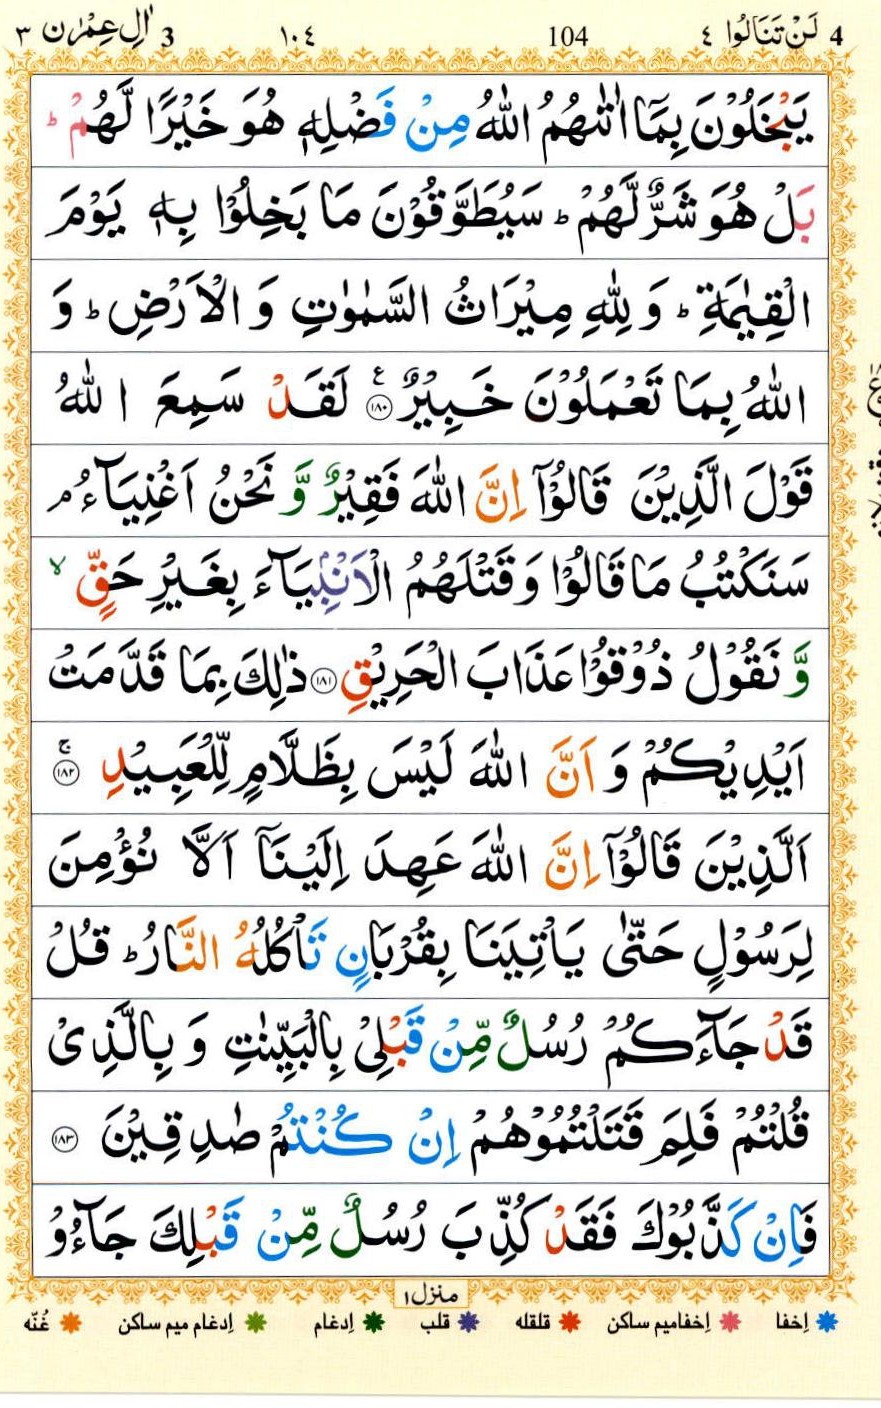 4 لَنْ تَنَالُوا ٤ 104 ١٠٤ 3 اٰلِ عِمْرٰن ٣
يَبْخَلُوْنَ بِمَاۤ اٰتٰىهُمُ اللّٰهُ مِنْ فَضْلِهٖ هُوَ خَيْرًا لَّهُمْ ؕ
بَلْ هُوَ شَرٌّ لَّهُمْ ؕ سَيُطَوَّقُوْنَ مَا بَخِلُوْا بِهٖ يَوْمَ
الْقِيٰمَةِ ؕ وَ لِلّٰهِ مِيْرَاثُ السَّمٰوٰتِ وَ الْاَرْضِ ؕ وَ
اللّٰهُ بِمَا تَعْمَلُوْنَ خَبِيْرٌ ۧ ﴿۱۸۰﴾ لَقَدْ سَمِعَ اللّٰهُ
قَوْلَ الَّذِيْنَ قَالُوْۤا اِنَّ اللّٰهَ فَقِيْرٌ وَّ نَحْنُ اَغْنِيَآءُ ۘ
سَنَكْتُبُ مَا قَالُوْا وَ قَتْلَهُمُ الْاَنْۢبِيَآءَ بِغَيْرِ حَقٍّ ۙ
وَّ نَقُوْلُ ذُوْقُوْا عَذَابَ الْحَرِيْقِ ﴿۱۸۱﴾ ذٰلِكَ بِمَا قَدَّمَتْ
اَيْدِيْكُمْ وَ اَنَّ اللّٰهَ لَيْسَ بِظَلَّامٍ لِّلْعَبِيْدِ ۚ ﴿۱۸۲﴾
اَلَّذِيْنَ قَالُوْۤا اِنَّ اللّٰهَ عَهِدَ اِلَيْنَاۤ اَلَّا نُؤْمِنَ
لِرَسُوْلٍ حَتّٰى يَاْتِيَنَا بِقُرْبَانٍ تَاْكُلُهُ النَّارُ ؕ قُلْ
قَدْ جَآءَكُمْ رُسُلٌ مِّنْ قَبْلِيْ بِالْبَيِّنٰتِ وَ بِالَّذِيْ
قُلْتُمْ فَلِمَ قَتَلْتُمُوْهُمْ اِنْ كُنْتُمْ صٰدِقِيْنَ ﴿۱۸۳﴾
فَاِنْ كَذَّبُوْكَ فَقَدْ كُذِّبَ رُسُلٌ مِّنْ قَبْلِكَ جَآءُوْ
منزل ۱
اِخفا اِخفامیم ساکن قلقله قلب اِدغام اِدغام میم ساکن غُنّه